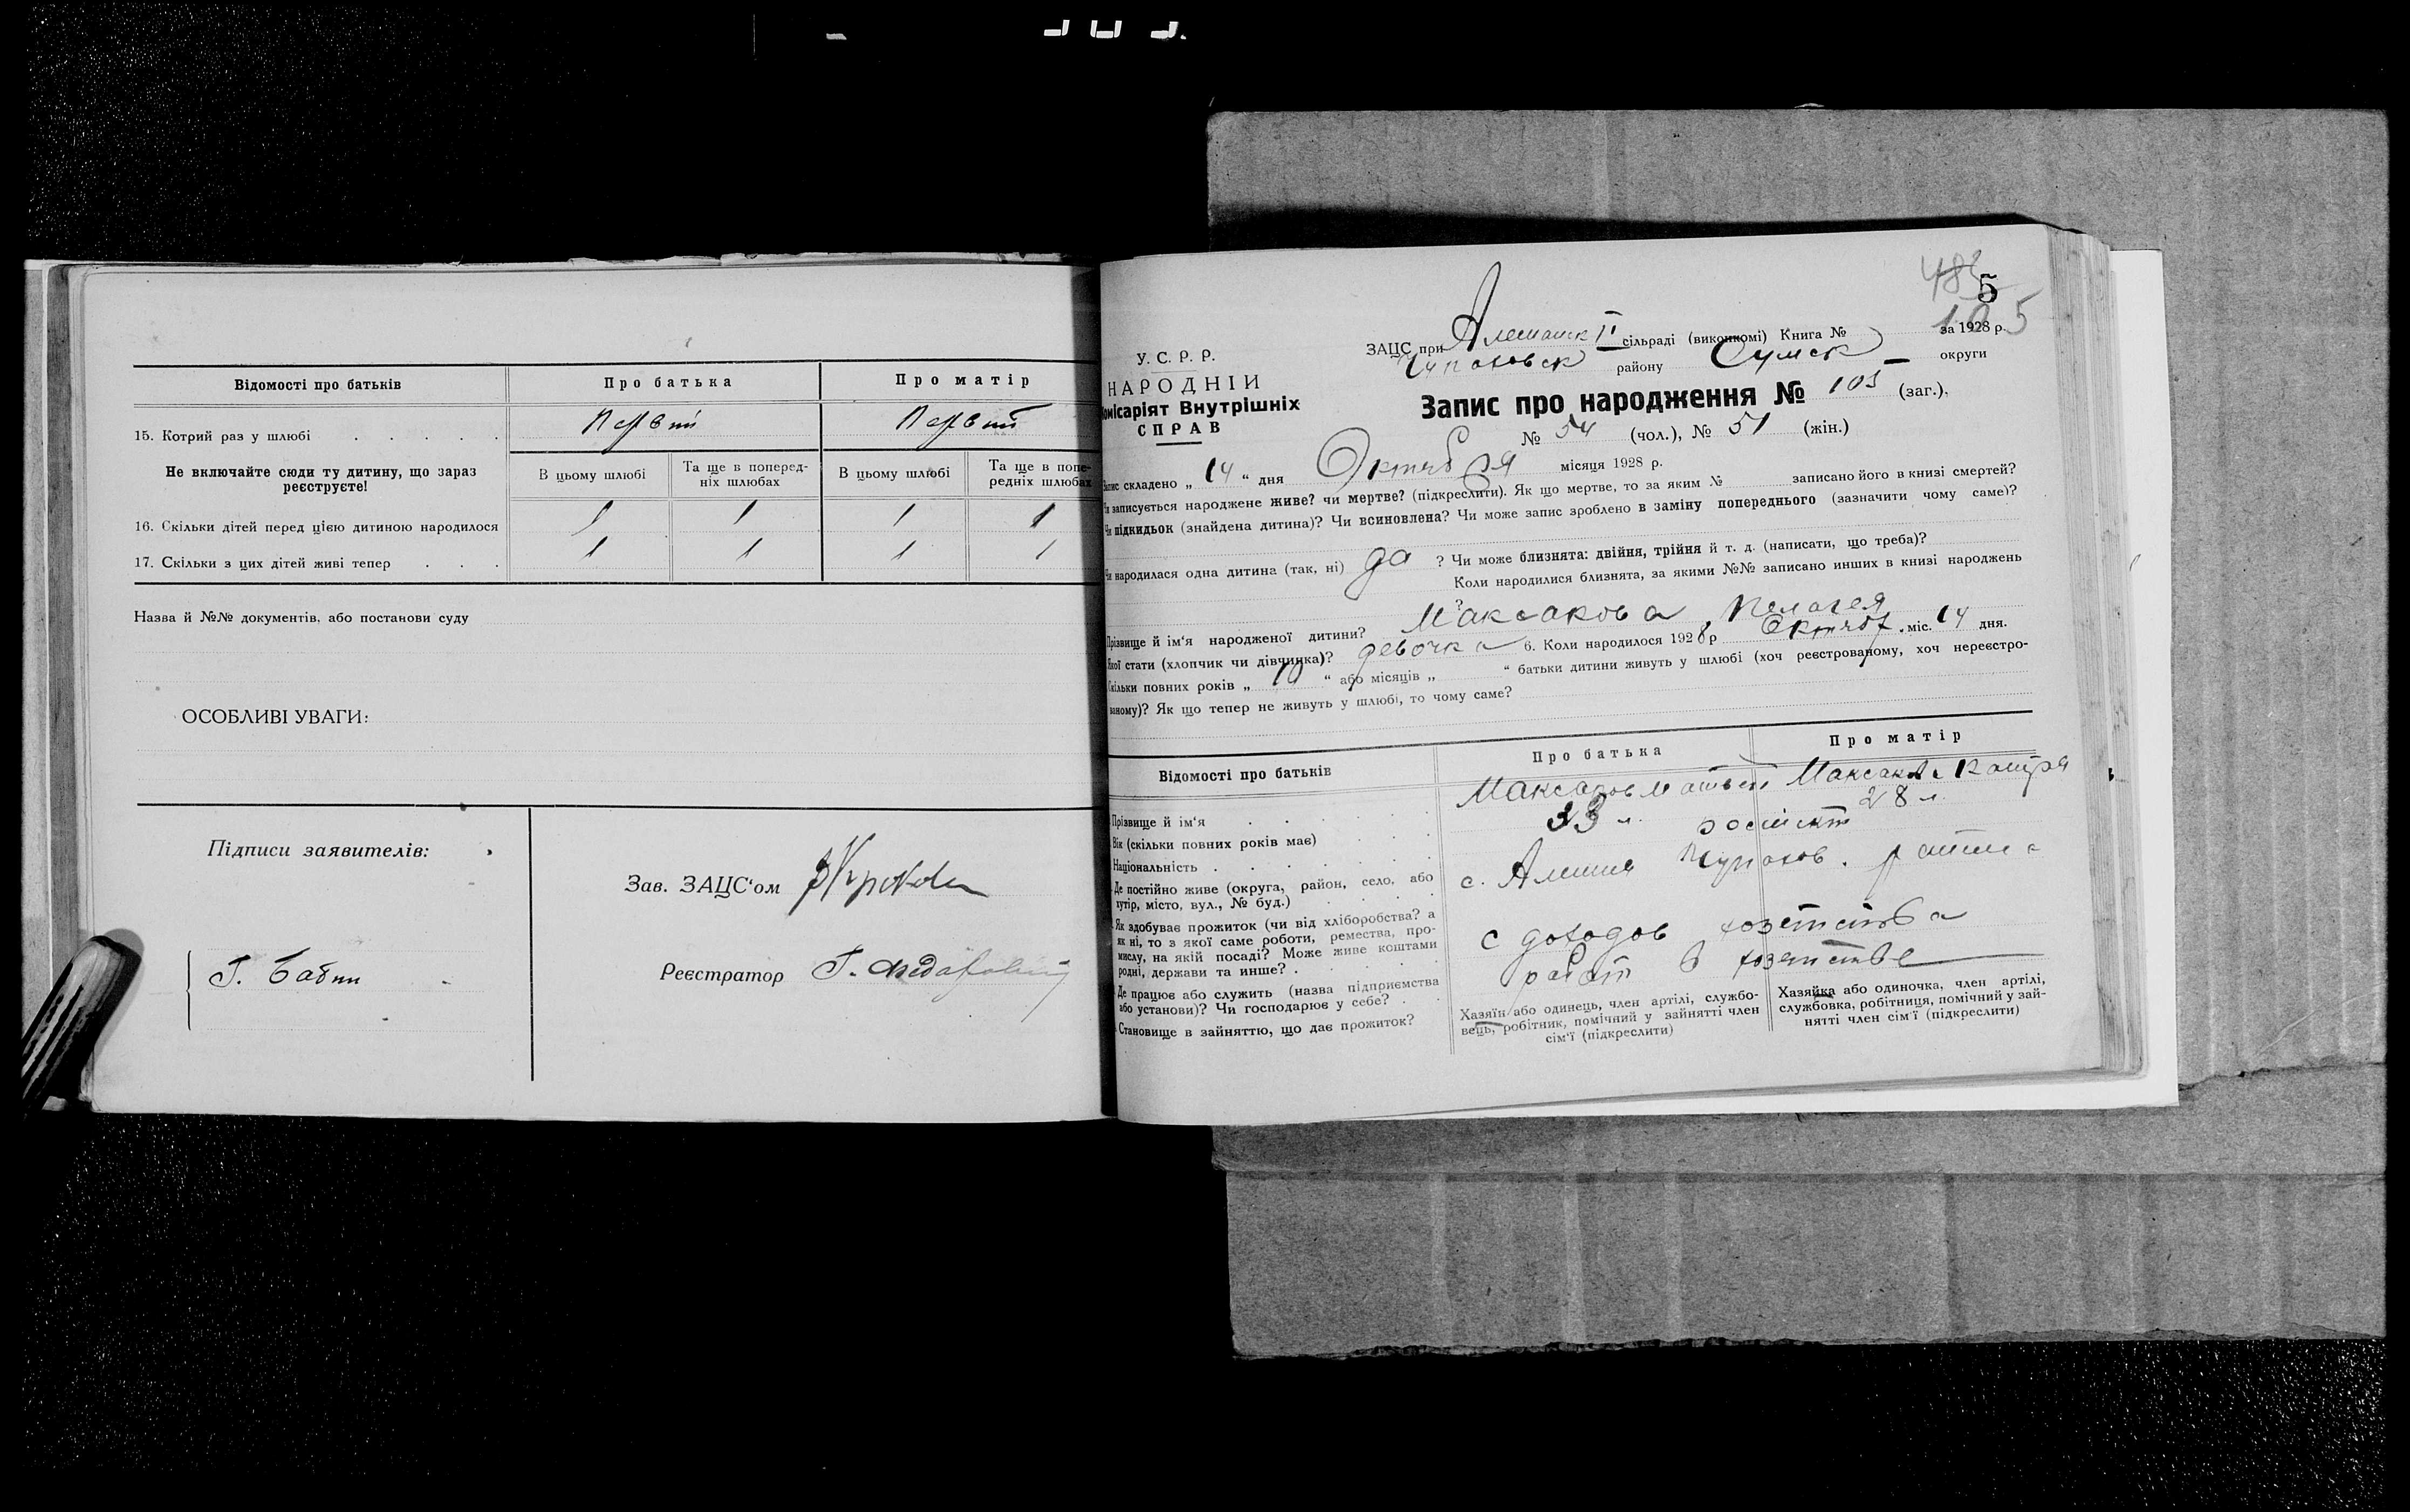 Відомості про батьків Про батька Про матір
15. Котрий раз у шлюбі Первий Первий
Не включайте сюди ту дитину, що зараз реєструєте!
В цьому шлюбі Та ще в поперед-ніх шлюбах В цьому шлюбі Та ще в попе-редніх шлюбах
16. Скільки дітей перед цією дитиною народилося 1 1 1 1
17. Скільки з цих дітей живі тепер 1 1 1 1
Назва й №№ документів, або постанови суду
ОСОБЛИВІ УВАГИ:
Підписи заявителів:
Г. Бабин
Зав. ЗАЦС'ом
Реєстратор Г.
5
105
У. С. Р. Р.
НАРОДНІЙ
Комісаріят Внутрішніх
СПРАВ
ЗАЦС при Алешанск II сільраді (виконкомі) Книга № за 1928 р.
Чупаховск району Сумск округи
Запис про народження № 105 (заг.),
№ 54 (чол.), № 51 (жін.)
Запис складено „ 14 “ дня Октября місяця 1928 р.
Чи записується народжене живе? чи мертве? (підкреслити). Як що мертве, то за яким № записано його в книзі смертей?
Чи підкидьок (знайдена дитина)? Чи всиновлена? Чи може запис зроблено в заміну попереднього (зазначити чому саме)?
Чи народилася одна дитина (так, ні) да ? Чи може близнята: двійня, трійня й т. д. (написати, що треба)?
Коли народилися близнята, за якими №№ записано инших в книзі народжень
?
Прізвище й ім'я народженої дитини? Максакова Пелагея
Якої стати (хлопчик чи дівчинка)? девочка 6. Коли народилося 1928 р Октяб. міс. 14 дня.
Скільки повних років „ 10 “ або місяців „ “ батьки дитини живуть у шлюбі (хоч реєстрованому, хоч нереєстро-
ваному)? Як що тепер не живуть у шлюбі, то чому саме?
Відомості про батьків Про батька Про матір
Прізвище й ім'я Максаков Матвей
Вік (скільки повних років має) 33 л. 28 л.
Національність
Де постійно живе (округа, район, село, або
хутір, місто, вул., № буд.)
Як здобуває прожиток (чи від хліборобства? а
як ні, то з якої саме роботи, ремества, про-
мислу, на якій посаді? Може живе коштами
родні, держави та инше? с доходов хозетства
Де працює або служить (назва підприємства
або установи)? Чи господарює у себе? работ в хозетстве
Становище в зайняттю, що дає прожиток?
Хазяїн або одинець, член артілі, службо-
вець, робітник, помічний у зайнятті член
сім'ї (підкреслити)
Хазяйка або одиночка, член артілі,
службовка, робітниця, помічний у зай-
нятті член сім'ї (підкреслити)